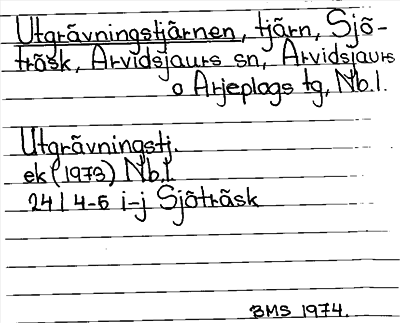 Utgrävningstjärnen, tjärn, Sjö-
träsk, Arvidsjaurs sn, Arvidsjaurs
o Arjeplogs tg, Nb.l.
Utgrävningstj.
ek (1973) Nb.l.
24I 4-5 i-j Sjöträsk
BMS 1974.